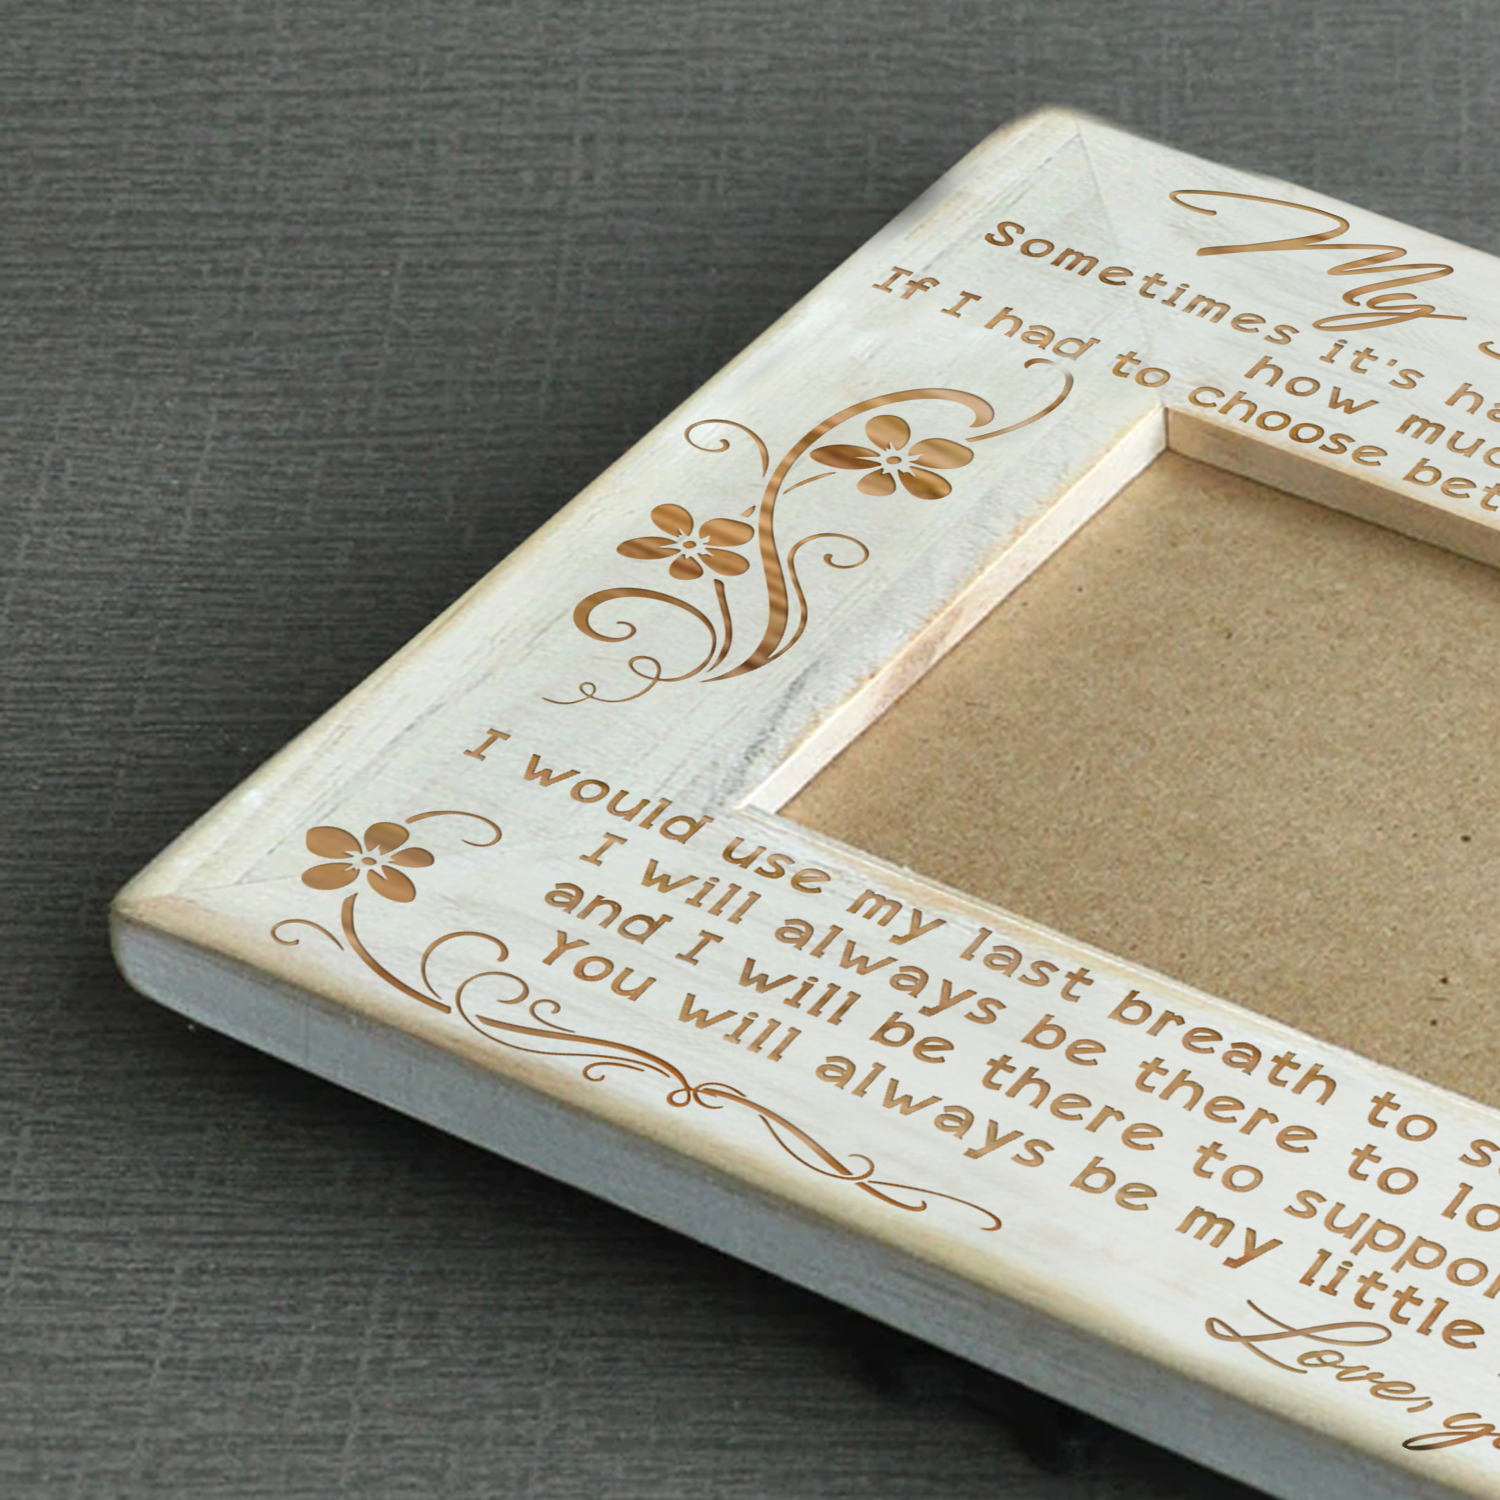 My
sometimes it's
how
If I had to choose
I would use my last breath to
I will always be there to
and I will be there to
You will always be my little
Love,